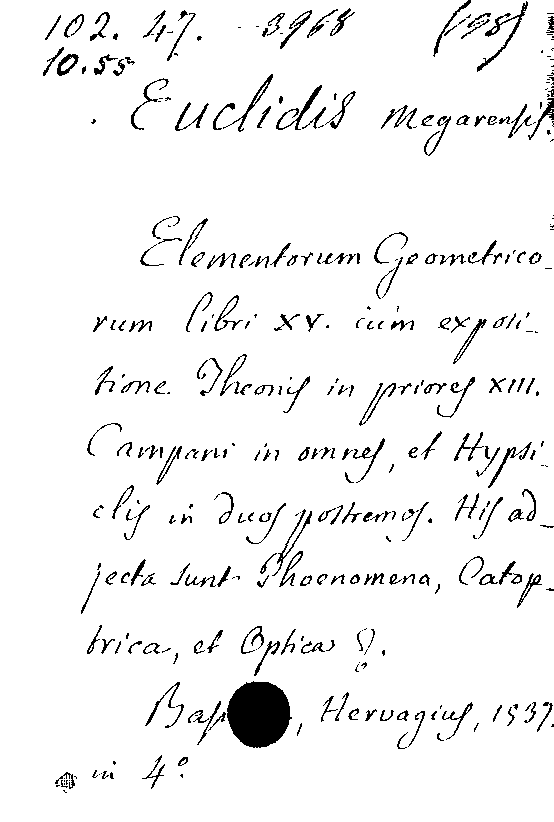 102. 47. 3968 (198)
10.55
Euclidis Megarensis.
Elementorum Geometrico-
rum libri XV. cum exposi-
tione. Theonis in priores XIII.
Campani in omnes, et Hypsi-
clis in duos postremos. His ad-
jecta sunt Phoenomena, Catop-
trica, et Optica &.
Hervagius, 1537.
in 4°